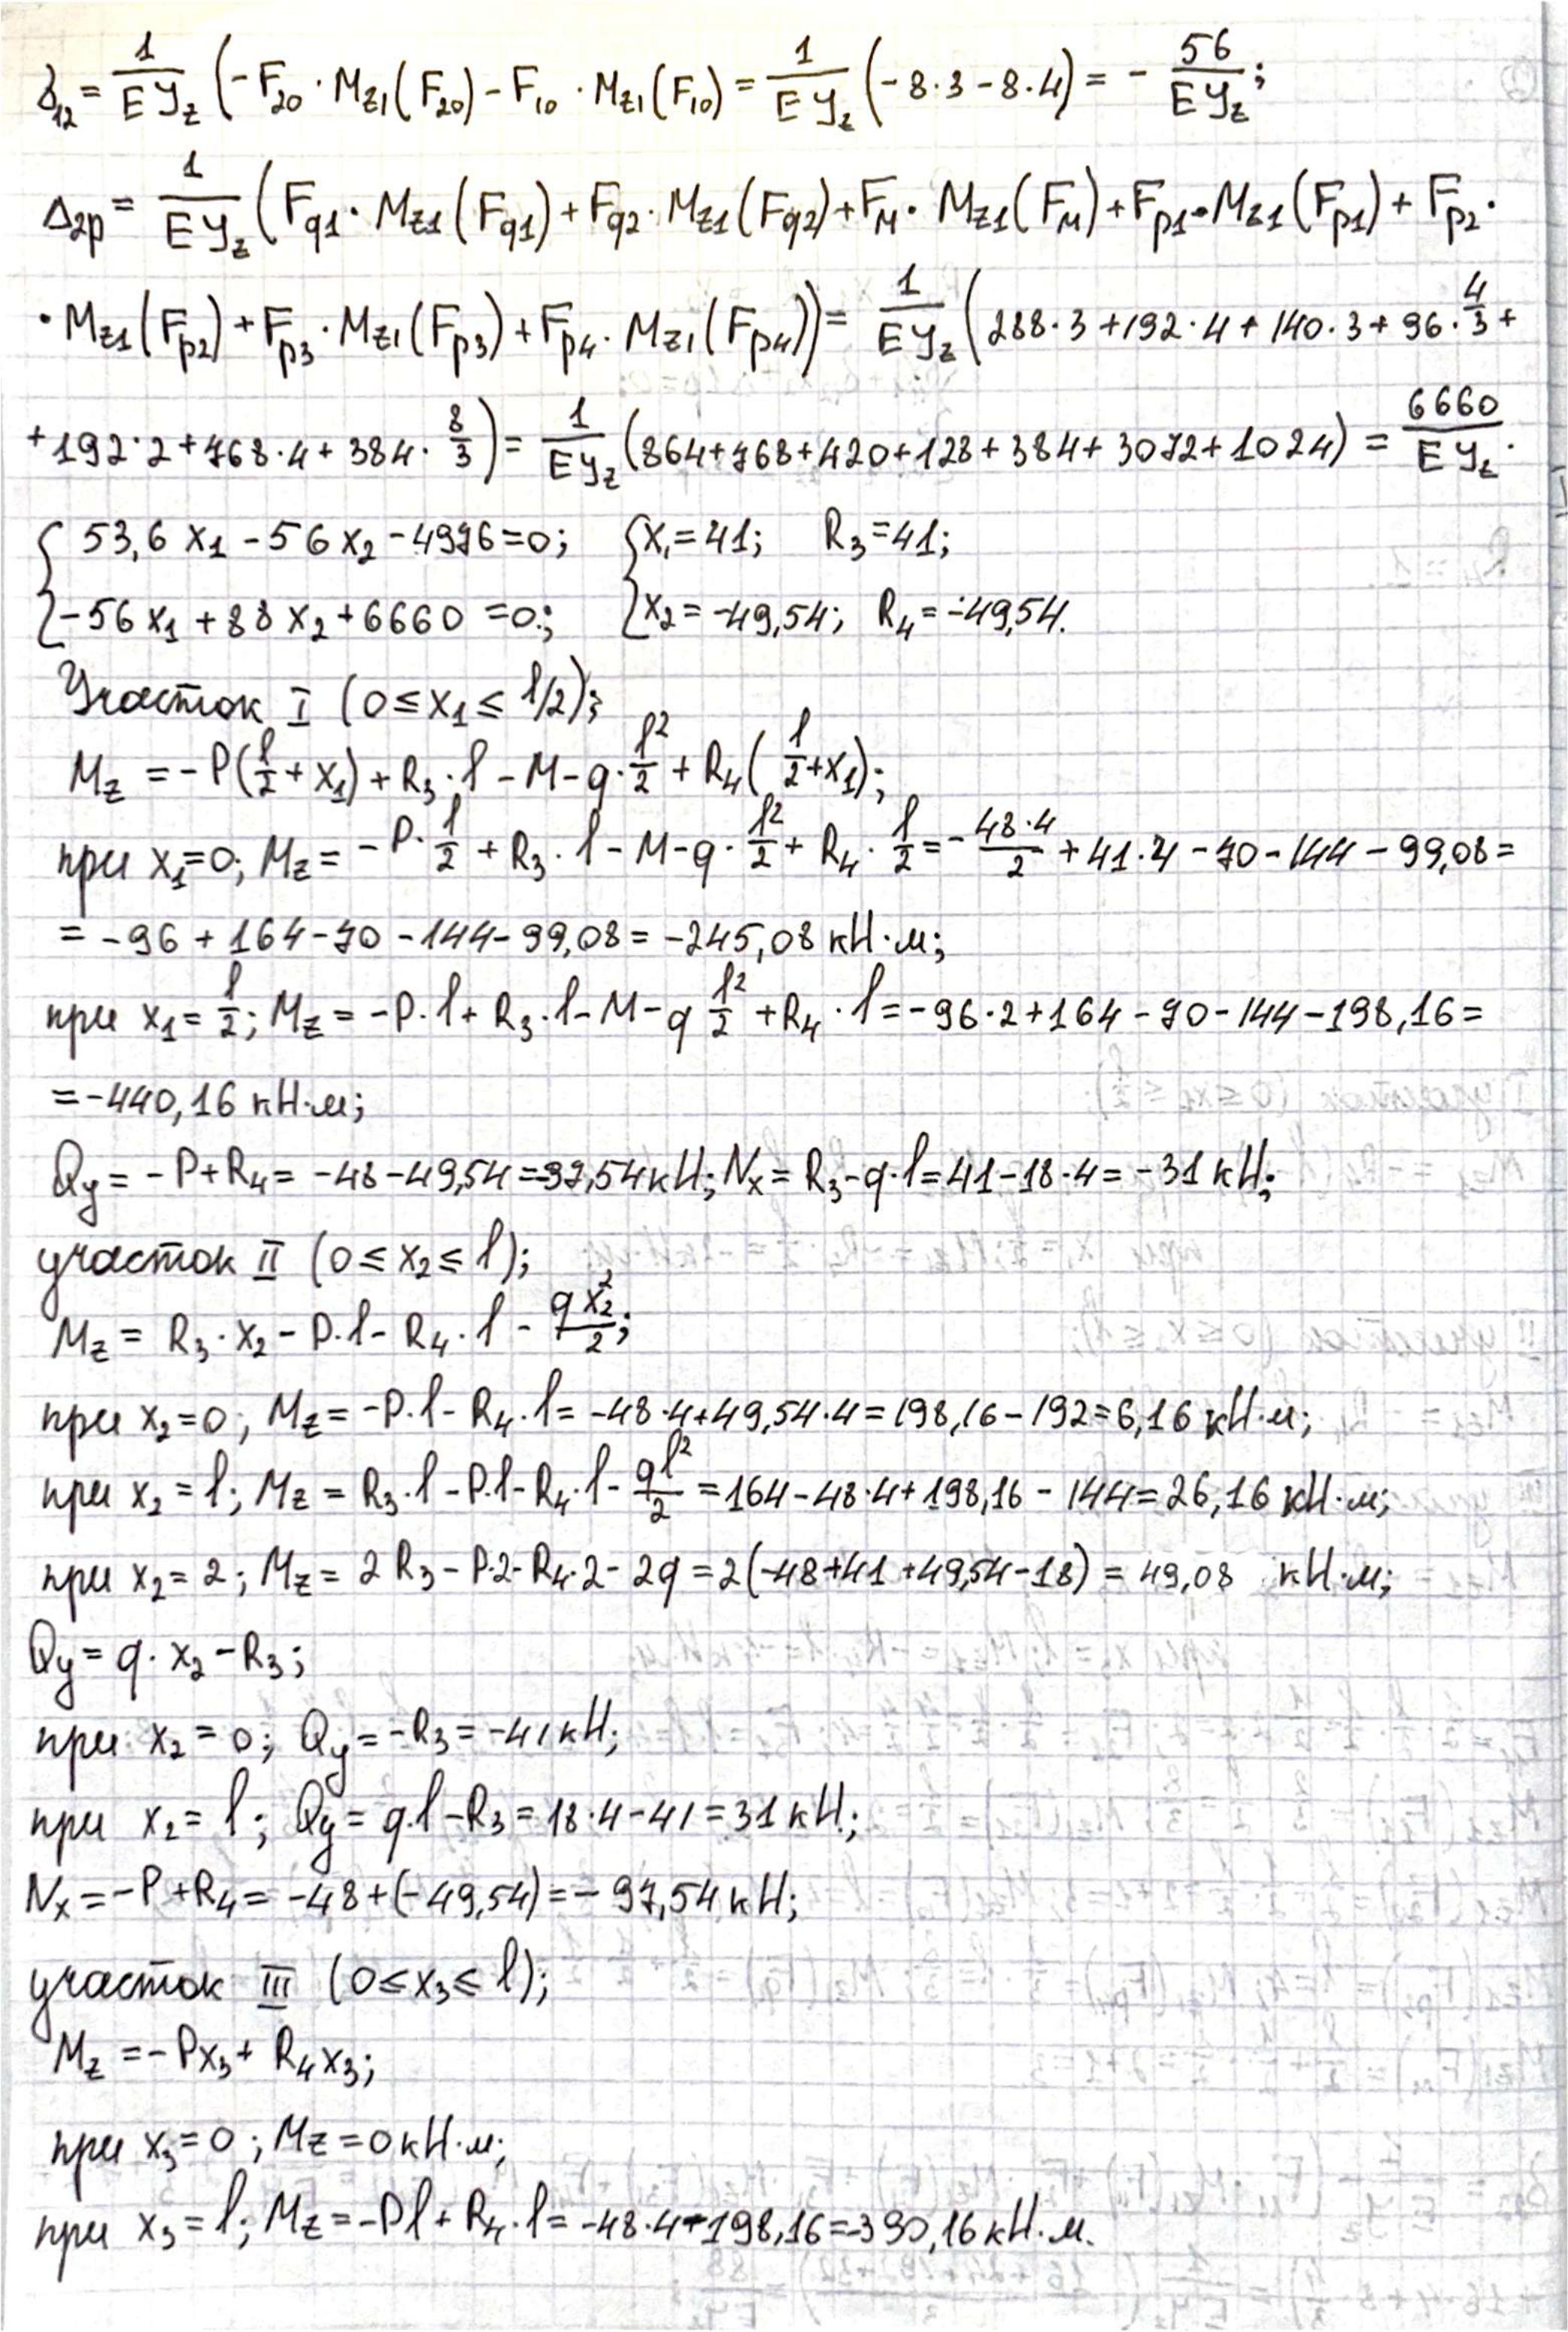 δ₁₂ = 1/(EJ_z) (-F₂₀ · M_z1(F₂₀) - F₁₀ · M_z1(F₁₀)) = 1/(EJ_z) (-8·3-8·4) = - 56/(EJ_z);
Δ₂p = 1/(EJ_z) (F_q1 · M_z1(F_q1) + F_q2 · M_z1(F_q2) + F_M · M_z1(F_M) + F_p1 · M_z1(F_p1) + F_p2 ·
· M_z1(F_p2) + F_p3 · M_z1(F_p3) + F_p4 · M_z1(F_p4)) = 1/(EJ_z) (288·3 + 192·4 + 140·3 + 96·4/3 +
+ 192·2 + 768·4 + 384·8/3) = 1/(EJ_z) (864+768+420+128+384+3072+1024) = 6660/(EJ_z).
{ 53,6 x₁ - 56 x₂ - 4976 = 0; { x₁ = 41; R₃ = 41;
{ -56 x₁ + 88 x₂ + 6660 = 0; { x₂ = -49,54; R₄ = -49,54.
Участок I (0 ≤ x₁ ≤ l/2);
M_z = -P(l/2 + x₁) + R₃ · l - M - q · l²/2 + R₄(l/2 + x₁);
при x₁=0; M_z = -P · l/2 + R₃ · l - M - q · l²/2 + R₄ · l/2 = - 48·4/2 + 41·4 - 70 - 144 - 99,08 =
= -96 + 164 - 70 - 144 - 99,08 = -245,08 кН·м;
при x₁ = l/2; M_z = -P · l + R₃ · l - M - q l²/2 + R₄ · l = -96·2 + 164 - 70 - 144 - 198,16 =
= -440,16 кН·м;
Q_y = -P + R₄ = -48 - 49,54 = -97,54 кН; N_x = R₃ - q · l = 41 - 18·4 = -31 кН;
участок II (0 ≤ x₂ ≤ l);
M_z = R₃ · x₂ - P · l - R₄ · l - qx₂²/2;
при x₂=0; M_z = -P · l - R₄ · l = -48·4 + 49,54·4 = 198,16 - 192 = 6,16 кН·м;
при x₂ = l; M_z = R₃ · l - P·l - R₄ · l - ql²/2 = 164 - 48·4 + 198,16 - 144 = 26,16 кН·м;
при x₂ = 2; M_z = 2R₃ - P·2 - R₄·2 - 2q = 2(-48+41+49,54-18) = 49,08 кН·м;
Q_y = q · x₂ - R₃;
при x₂ = 0; Q_y = -R₃ = -41 кН;
при x₂ = l; Q_y = q·l - R₃ = 18·4 - 41 = 31 кН;
N_x = -P + R₄ = -48 + (-49,54) = -97,54 кН;
участок III (0 ≤ x₃ ≤ l);
M_z = -Px₃ + R₄x₃;
при x₃ = 0; M_z = 0 кН·м;
при x₃ = l; M_z = -Pl + R₄ · l = -48·4 - 198,16 = -390,16 кН·м.